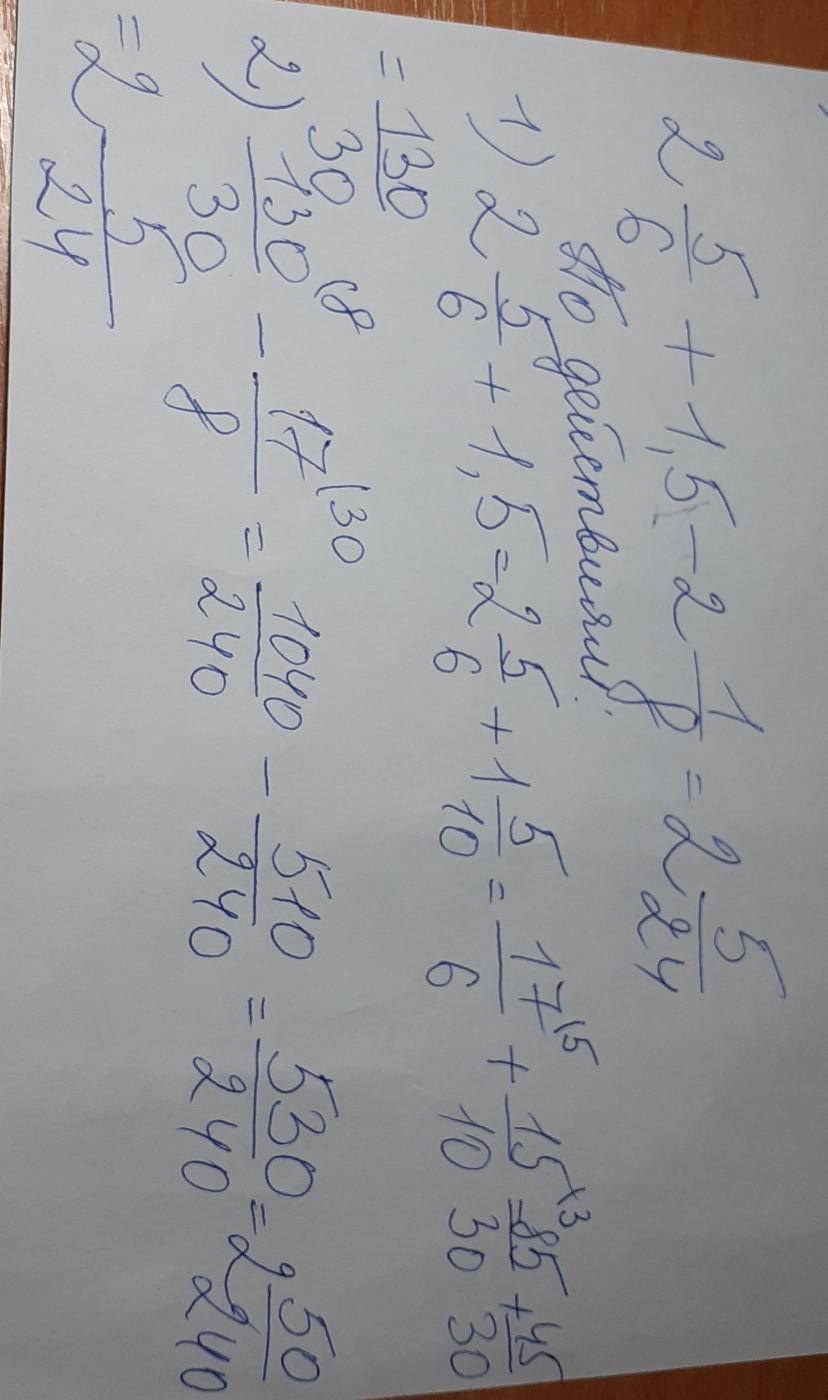 2 5/6 + 1,5 - 2 1/8 = 2 5/24
По действиям:
1) 2 5/6 + 1,5 = 2 5/6 + 1 5/10 = 17\5/6 + 15\3/10 = 85/30 + 45/30
= 130/30
2) 130\8/30 - 17\30/8 = 1040/240 - 510/240 = 530/240 = 2 50/240
= 2 5/24